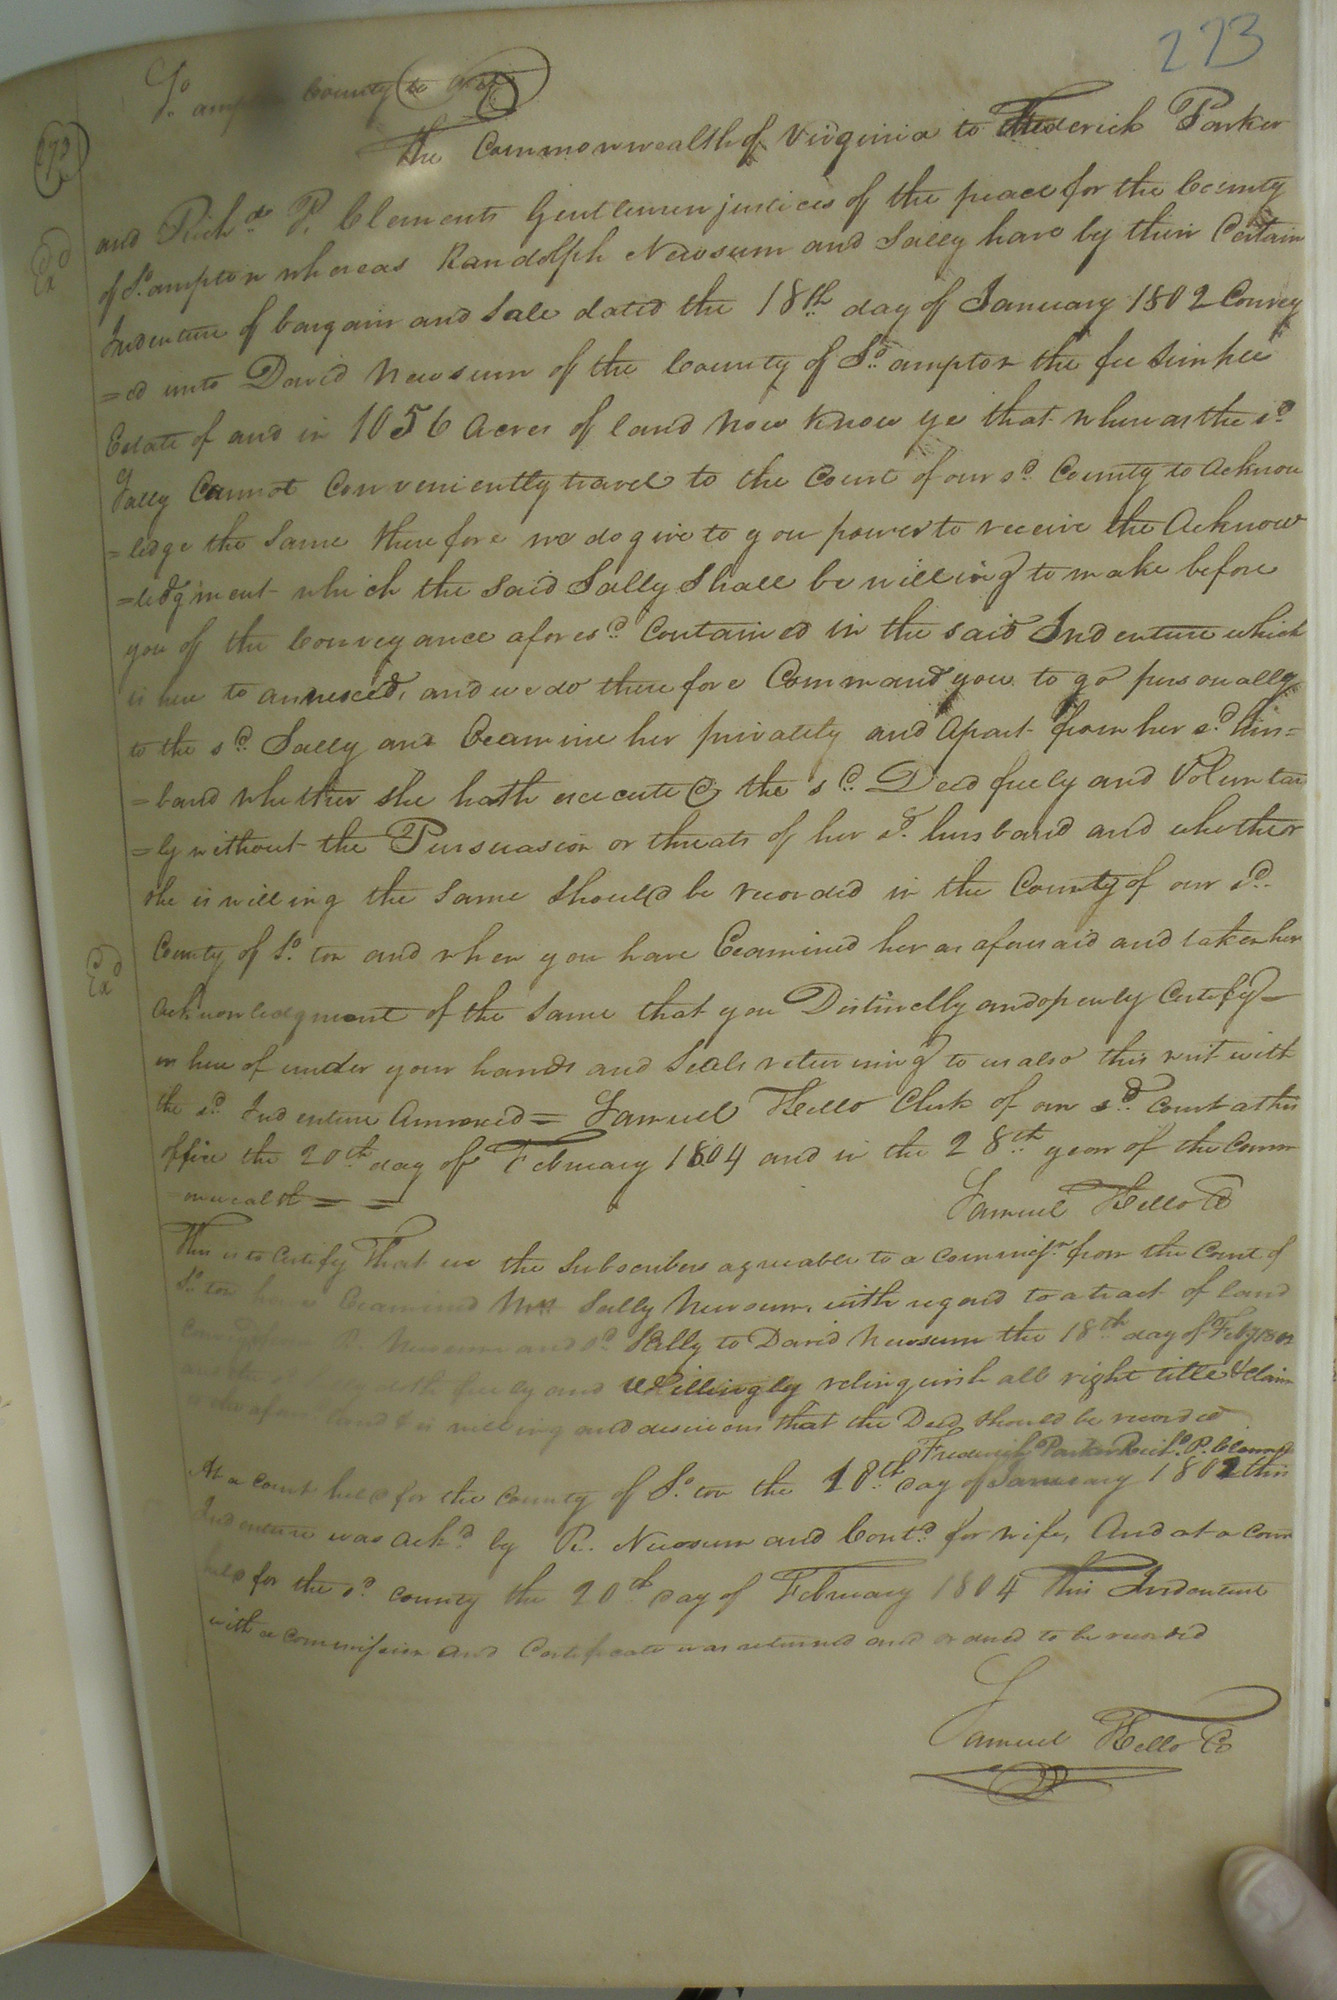 223
So. ampton County to wit
The Commonwealth of Virginia to Frederick Parker
and Richd. P. Clements Gentlemen justices of the peace for the County
of So. ampton whereas Randolph Newsum and Sally have by their Certain
Indenture of bargain and Sale dated the 18th day of January 1802 Convey
=ed unto David Newsum of the County of So. ampton the fee Simple
Estate of and in 1056 Acres of land Now Know ye that whereas the sd.
Sally Cannot Conveniently travel to the Court of our sd. County to Acknow
=ledge the Same therefore we do give to you power to receive the Acknow
=ledgment which the Said Sally Shall be willing to make before
you of the Conveyance aforesd. Contained in the said Indenture which
is here to annexed, and we do therefore Command you to go personally
to the sd. Sally and Examine her privately and Apart from her sd. hus=
=band whether she hath executed the sd. Deed freely and Volunta
=ly without the Persuasion or threats of her sd. husband and whether
she is willing the Same Should be recorded in the County of our sd.
County of So. ton and when you have Examined her as aforesaid and taken her
Acknowledgment of the Same that you Distinctly and openly Certify
us hereof under your hands and Seals returning to us also this writ with
the sd. Indenture Annexed = Samuel Kello Clerk of our sd. Court at his
office the 20th day of February 1804 and in the 28th year of the Comm
onwealth = =
Samuel Kello C
This is to Certify That we the Subscribers agreeable to a commissn. from the Court of
So. ton have Examined Mrs Sally Newsum, with regard to a tract of land
R. Newsum and sd. Sally to David Newsum the 18th day of Feby 1802
freely and Willingly relinquish all right title & Claim
land & is willing and desirous that the Deed Should be recorded
Frederick Parker Richd. P. Clements
At a Court held for the County of So. ton the 18th Day of January 1802 this
Indenture was Ackd. by R. Newsum and Contd. for wife, And at a Cour
held for the sd. County the 20th day of February 1804 This Indenture
with a Commission and Certificate was returned and ordered to be recorded
Samuel Kello C
Exd
Exd